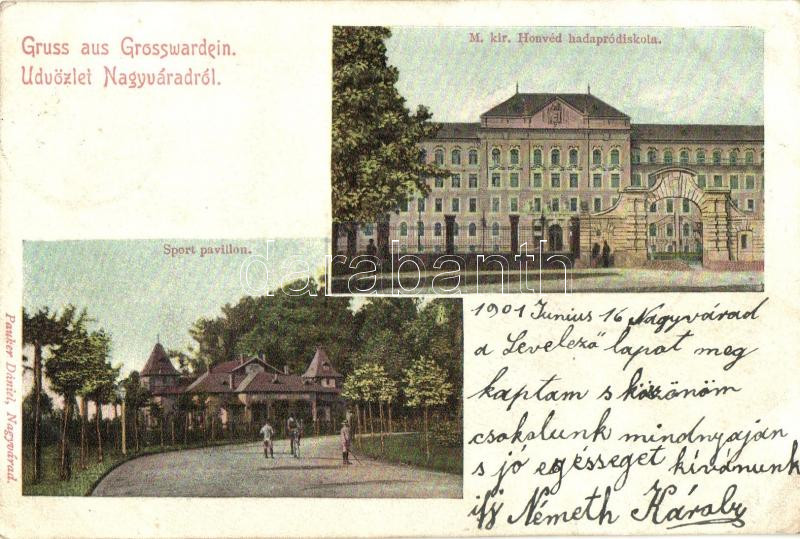 Gruss aus Grosswardein.
Üdvözlet Nagyváradról.
M. kir. Honvéd hadapródiskola.
Sport pavillon.
darabanth
Pauker Dániel, Nagyvárad.
1901 Junius 16 Nagyvárad
a Levelező lapot meg
kaptam s közönöm
csokolunk mindnyaján
s jó egésseget kívánunk
ifj Németh Károly